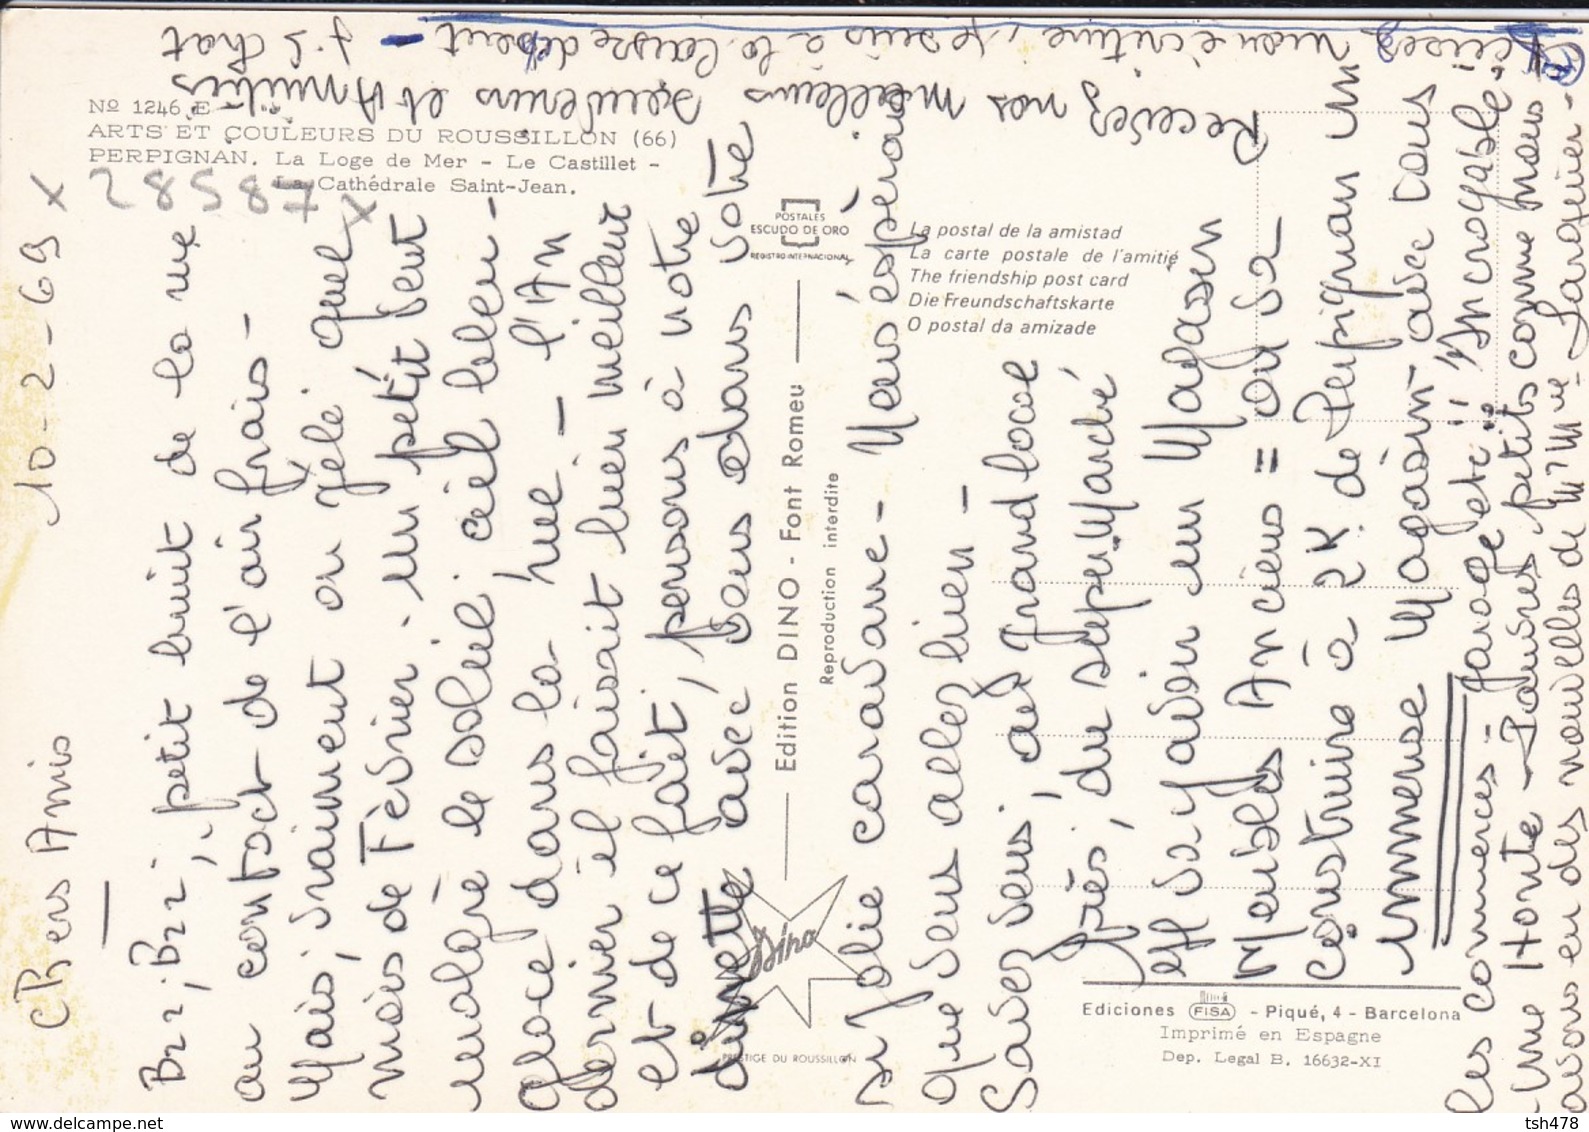 Chers Amis 10-2-69
Bri, Bri, petit bruit de la rue
au contact de l'air frais -
Mais, vraiment on gèle quel
mois de Fèvrier. un petit vent
malgrè le soleil, ciel bleu -
glace dans la rue - l'An
dernier il faisait bien meilleur
et de ce fait, pensons à notre
dinette avec vous dans votre
si jolie caravane - Nous éspérons
que vous allez bien -
Savez vous, au grand local
près, du super Marché
il va y avoir un Magasin
Meubles Anciens = on va
construire à 2K. de Perpignan un
immense Magasin, avec tous
les commerces - garage etc!! Incroyable!
- une Honte - Pauvres petits comme nous
avons eu des nouvelles de Mme
Recevez nos meilleurs souvenirs et Amitiés
mon écriture, je suis à la caisse debout -
Nº 1246 E
ARTS ET COULEURS DU ROUSSILLON (66)
PERPIGNAN. La Loge de Mer - Le Castillet -
La Cathédrale Saint-Jean.
x 28587 x
POSTALES
ESCUDO DE ORO
REGISTRO INTERNACIONAL
La postal de la amistad
La carte postale de l'amitié
The friendship post card
Die Freundschaftskarte
O postal da amizade
Edition DINO - Font Romeu
Reproduction interdite
Dino
PRESTIGE DU ROUSSILLON
Ediciones FISA - Piqué, 4 - Barcelona
Imprimé en Espagne
Dep. Legal B. 16632-XI
www.delcampe.net
tsh478